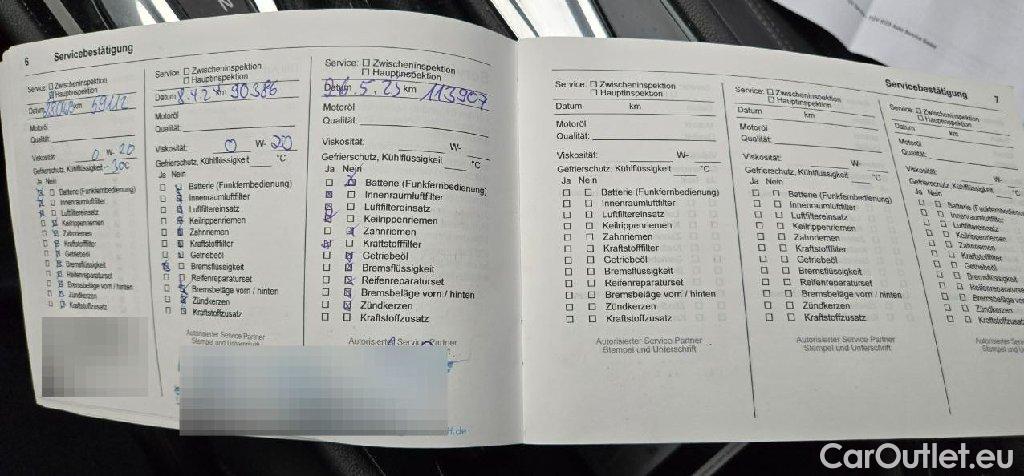 6 Servicebestätigung
Service: ☐ Zwischeninspektion
☐ Hauptinspektion
Datum km 59112
Motoröl
Qualität:
Viskosität: 0 W- 20
Gefrierschutz, Kühlflüssigkeit -30C
Ja Nein
Batterie (Funkfernbedienung)
Innenraumluftfilter
Luftfiltereinsatz
Keilrippenriemen
Zahnriemen
Kraftstofffilter
Getriebeöl
Bremsflüssigkeit
Reifenreparaturset
Bremsbeläge vorn / hinten
Zündkerzen
Kraftstoffzusatz
Service: ☐ Zwischeninspektion
☐ Hauptinspektion
Datum 8.12 km 90386
Motoröl
Qualität:
Viskosität: 0 W- 20
Gefrierschutz, Kühlflüssigkeit °C
Ja Nein
Batterie (Funkfernbedienung)
Innenraumluftfilter
Luftfiltereinsatz
Keilrippenriemen
Zahnriemen
Kraftstofffilter
Getriebeöl
Bremsflüssigkeit
Reifenreparaturset
Bremsbeläge vorn / hinten
Zündkerzen
Kraftstoffzusatz
Autorisierter Service Partner
Stempel und Unterschrift
Service: ☐ Zwischeninspektion
☐ Hauptinspektion
Datum 26.5.25 km 113907
Motoröl
Qualität:
Viskosität: W-
Gefrierschutz, Kühlflüssigkeit °C
Ja Nein
Batterie (Funkfernbedienung)
Innenraumluftfilter
Luftfiltereinsatz
Keilrippenriemen
Zahnriemen
Kraftstofffilter
Getriebeöl
Bremsflüssigkeit
Reifenreparaturset
Bremsbeläge vorn / hinten
Zündkerzen
Kraftstoffzusatz
Autorisierter Service Partner
.de
Servicebestätigung 7
Service: ☐ Zwischeninspektion
☐ Hauptinspektion
Datum km
Motoröl
Qualität:
Viskosität: W-
Gefrierschutz, Kühlflüssigkeit °C
Ja Nein
Batterie (Funkfernbedienung)
Innenraumluftfilter
Luftfiltereinsatz
Keilrippenriemen
Zahnriemen
Kraftstofffilter
Getriebeöl
Bremsflüssigkeit
Reifenreparaturset
Bremsbeläge vorn / hinten
Zündkerzen
Kraftstoffzusatz
Autorisierter Service Partner
Stempel und Unterschrift
Service: ☐ Zwischeninspektion
☐ Hauptinspektion
Datum km
Motoröl
Qualität:
Viskosität: W-
Gefrierschutz, Kühlflüssigkeit °C
Ja Nein
Batterie (Funkfernbedienung)
Innenraumluftfilter
Luftfiltereinsatz
Keilrippenriemen
Zahnriemen
Kraftstofffilter
Getriebeöl
Bremsflüssigkeit
Reifenreparaturset
Bremsbeläge vorn / hinten
Zündkerzen
Kraftstoffzusatz
Autorisierter Service Partner
Stempel und Unterschrift
Service: ☐ Zwischeninspektion
☐ Hauptinspektion
Datum km
Motoröl
Qualität:
Viskosität:
Gefrierschutz, Kühlflüssigkeit
Ja Nein
Batterie (Funkfernbed
Innenraumluftfilter
Luftfiltereinsatz
Keilrippenriemen
Zahnriemen
Kraftstofffilter
Getriebeöl
Bremsflüssigkeit
Reifenreparaturset
Bremsbeläge vorn
Zündkerzen
Kraftstoffzusatz
Autorisierter Servic
Stempel und U
CarOutlet.eu